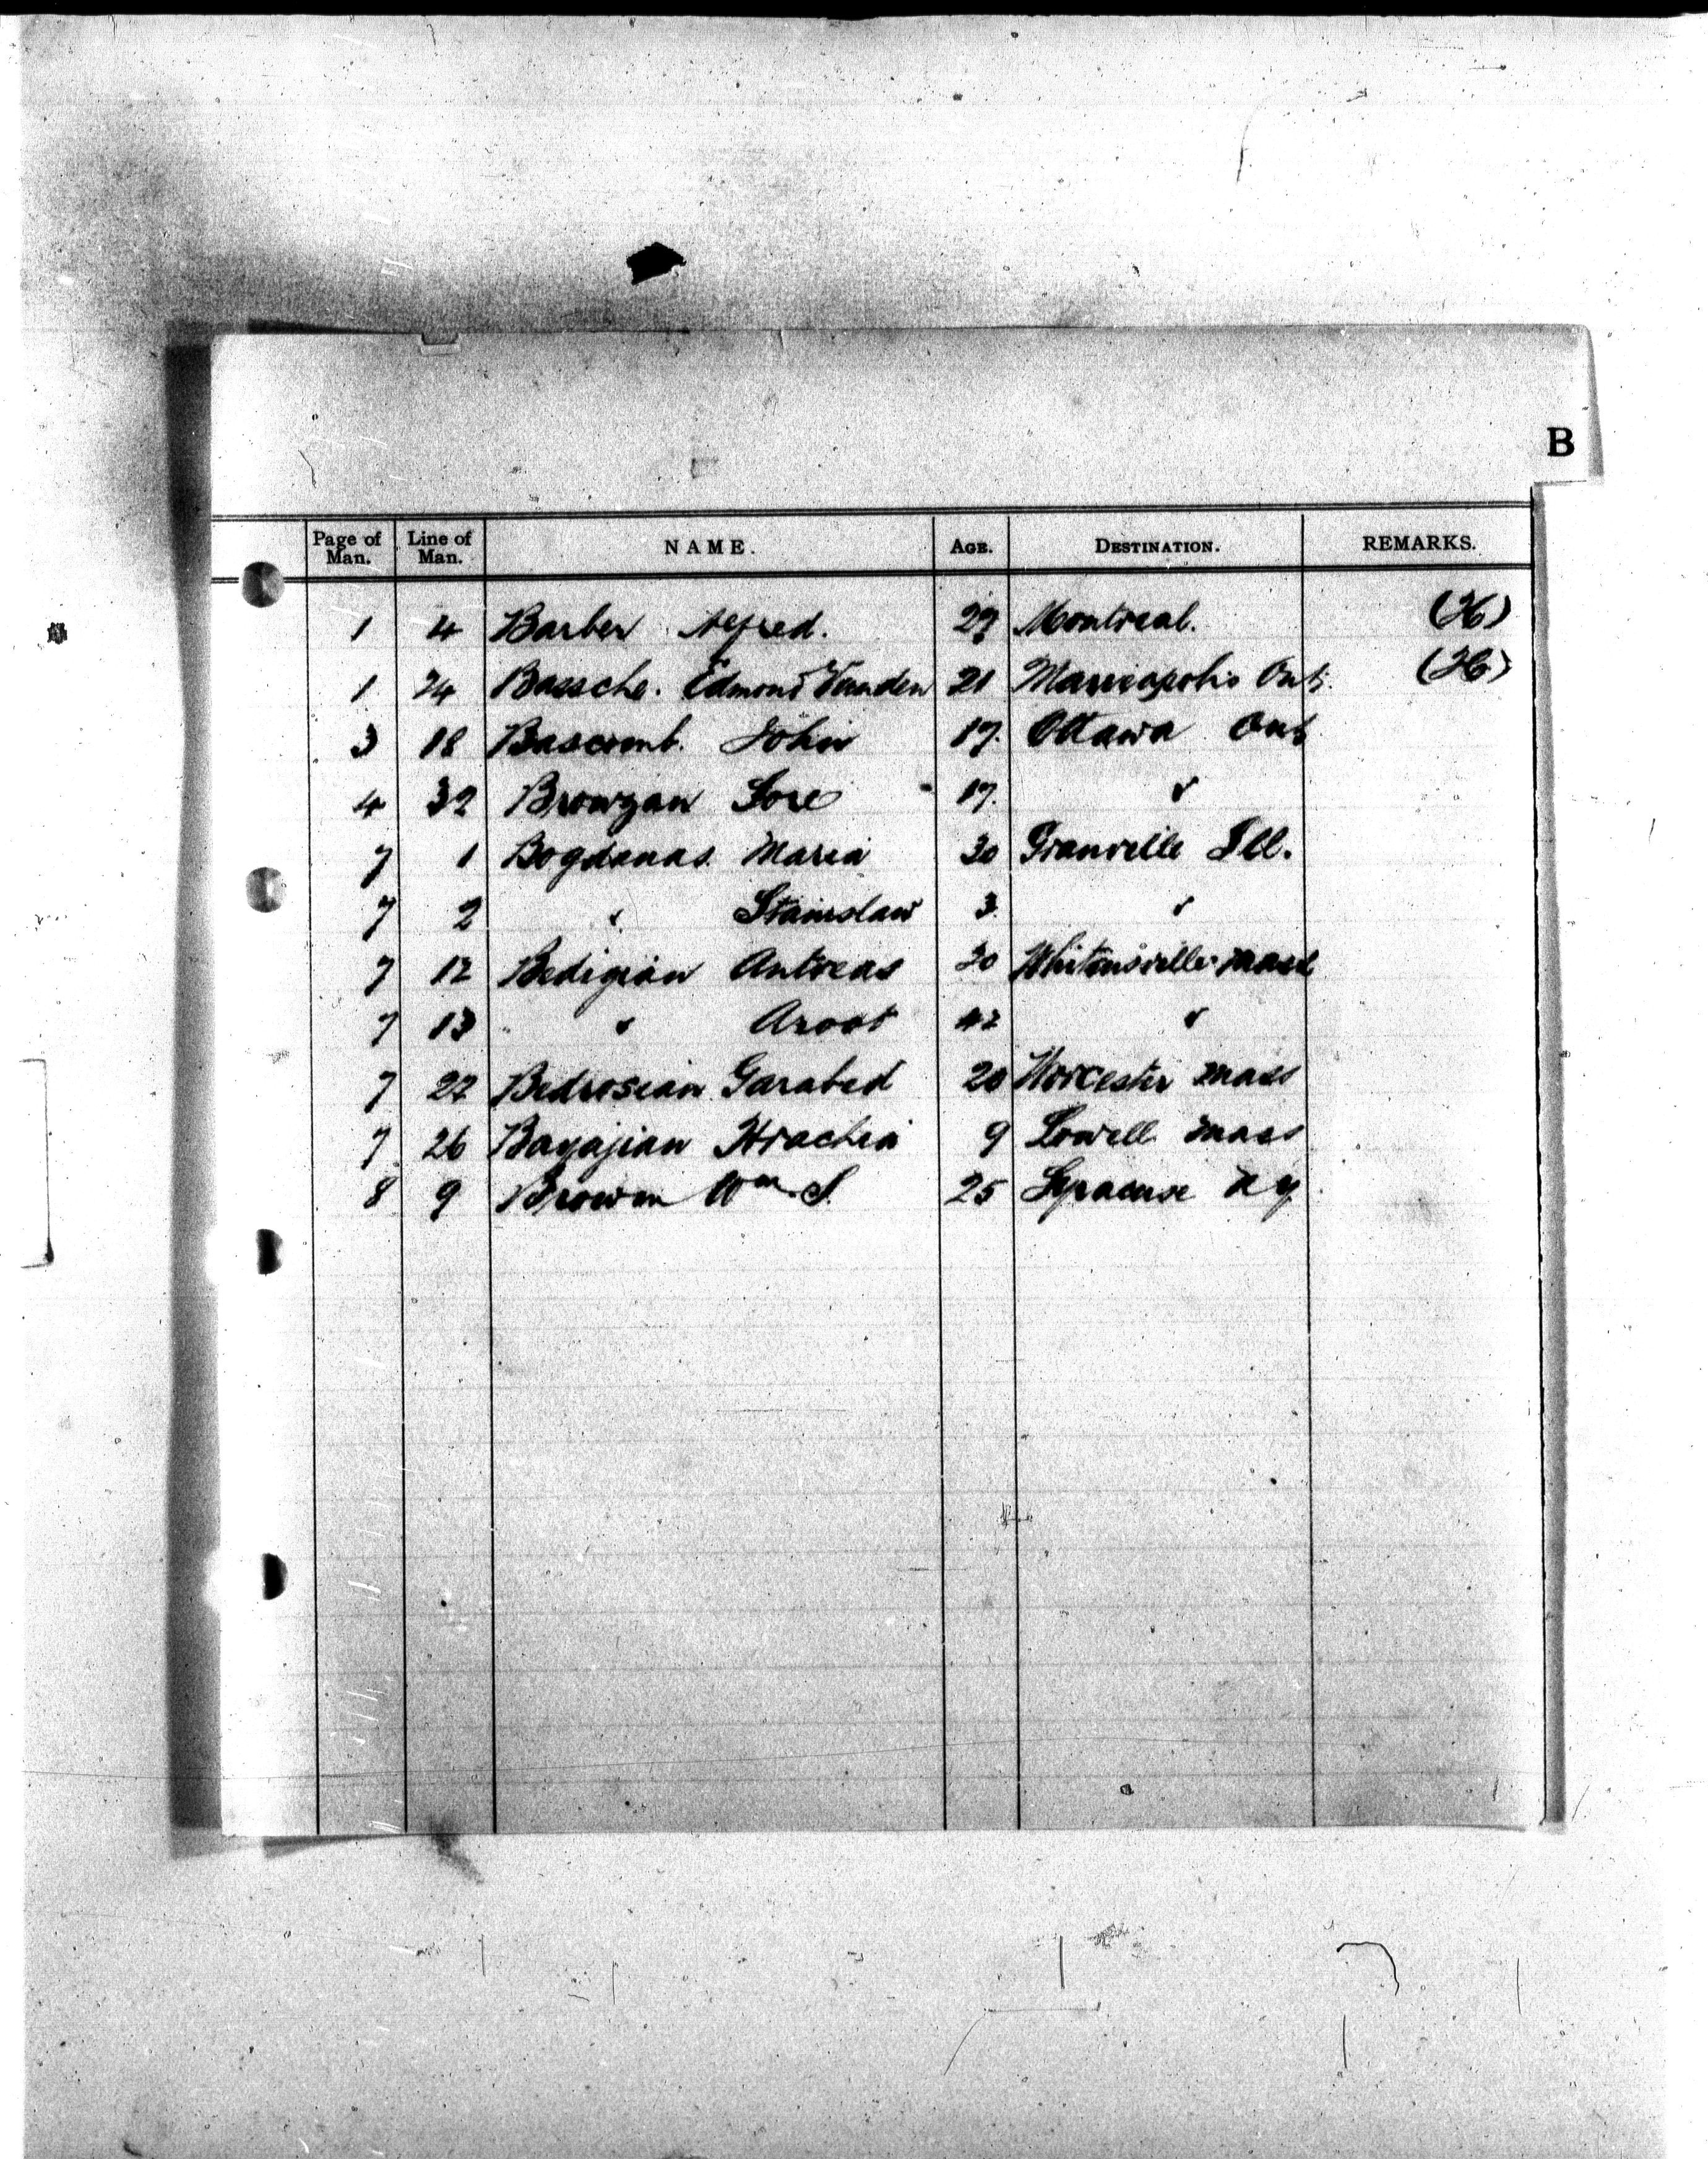 B
Page of Man. Line of Man. NAME. AGE. DESTINATION. REMARKS.
1 4 Barber Alfred. 29 Montreal. (H)
1 24 Bassche. Edmond Vanden 21 Mariapolis Ont. (H)
3 18 Bascomb. John 17. Ottawa Ont
4 32 Browzan Sore 17. "
7 1 Bogdanas. Maria 30 Granville Ill.
7 2 " Stanislaw 3 "
7 12 Bedigian Antreas 20 Whitinsville Mass
7 13 " Aroot 42 "
7 22 Bedrosian Garabed 20 Worcester Mass
7 26 Bagajian Hrachia 9 Lowell Mass
8 9 Brown Wm. S. 25 Syracuse N Y